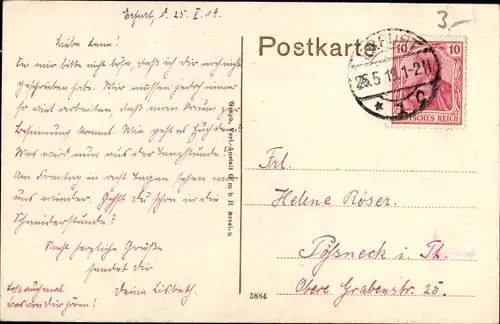 Erfurt, d. 25. V. 19.
Liebe Lena!
Sei mir bitte nicht böse, daß ich dir noch nicht
geschrieben habe. Wir müssen jedoch immer
so viel arbeiten, daß man kaum zur
Besinnung kommt. Wie geht es Euch denn?
Was wird nur aus der Tanzstunde?
Am Freitag in acht Tagen sehen wir
uns wieder. Gehst du schon in die
Schneiderstunde?
Recht herzliche Grüße
sendet Dir
Deine Lisbeth.
Laß auch mal
was von dir hören!
Graph. Verl.-Anstalt G m b H Breslau
5884
Postkarte
3.-
25.5.19. 1-2 N
10 10
DEUTSCHES REICH
Frl.
Helene Röser.
Pößneck i. Th.
Obere Grabenstr. 25.